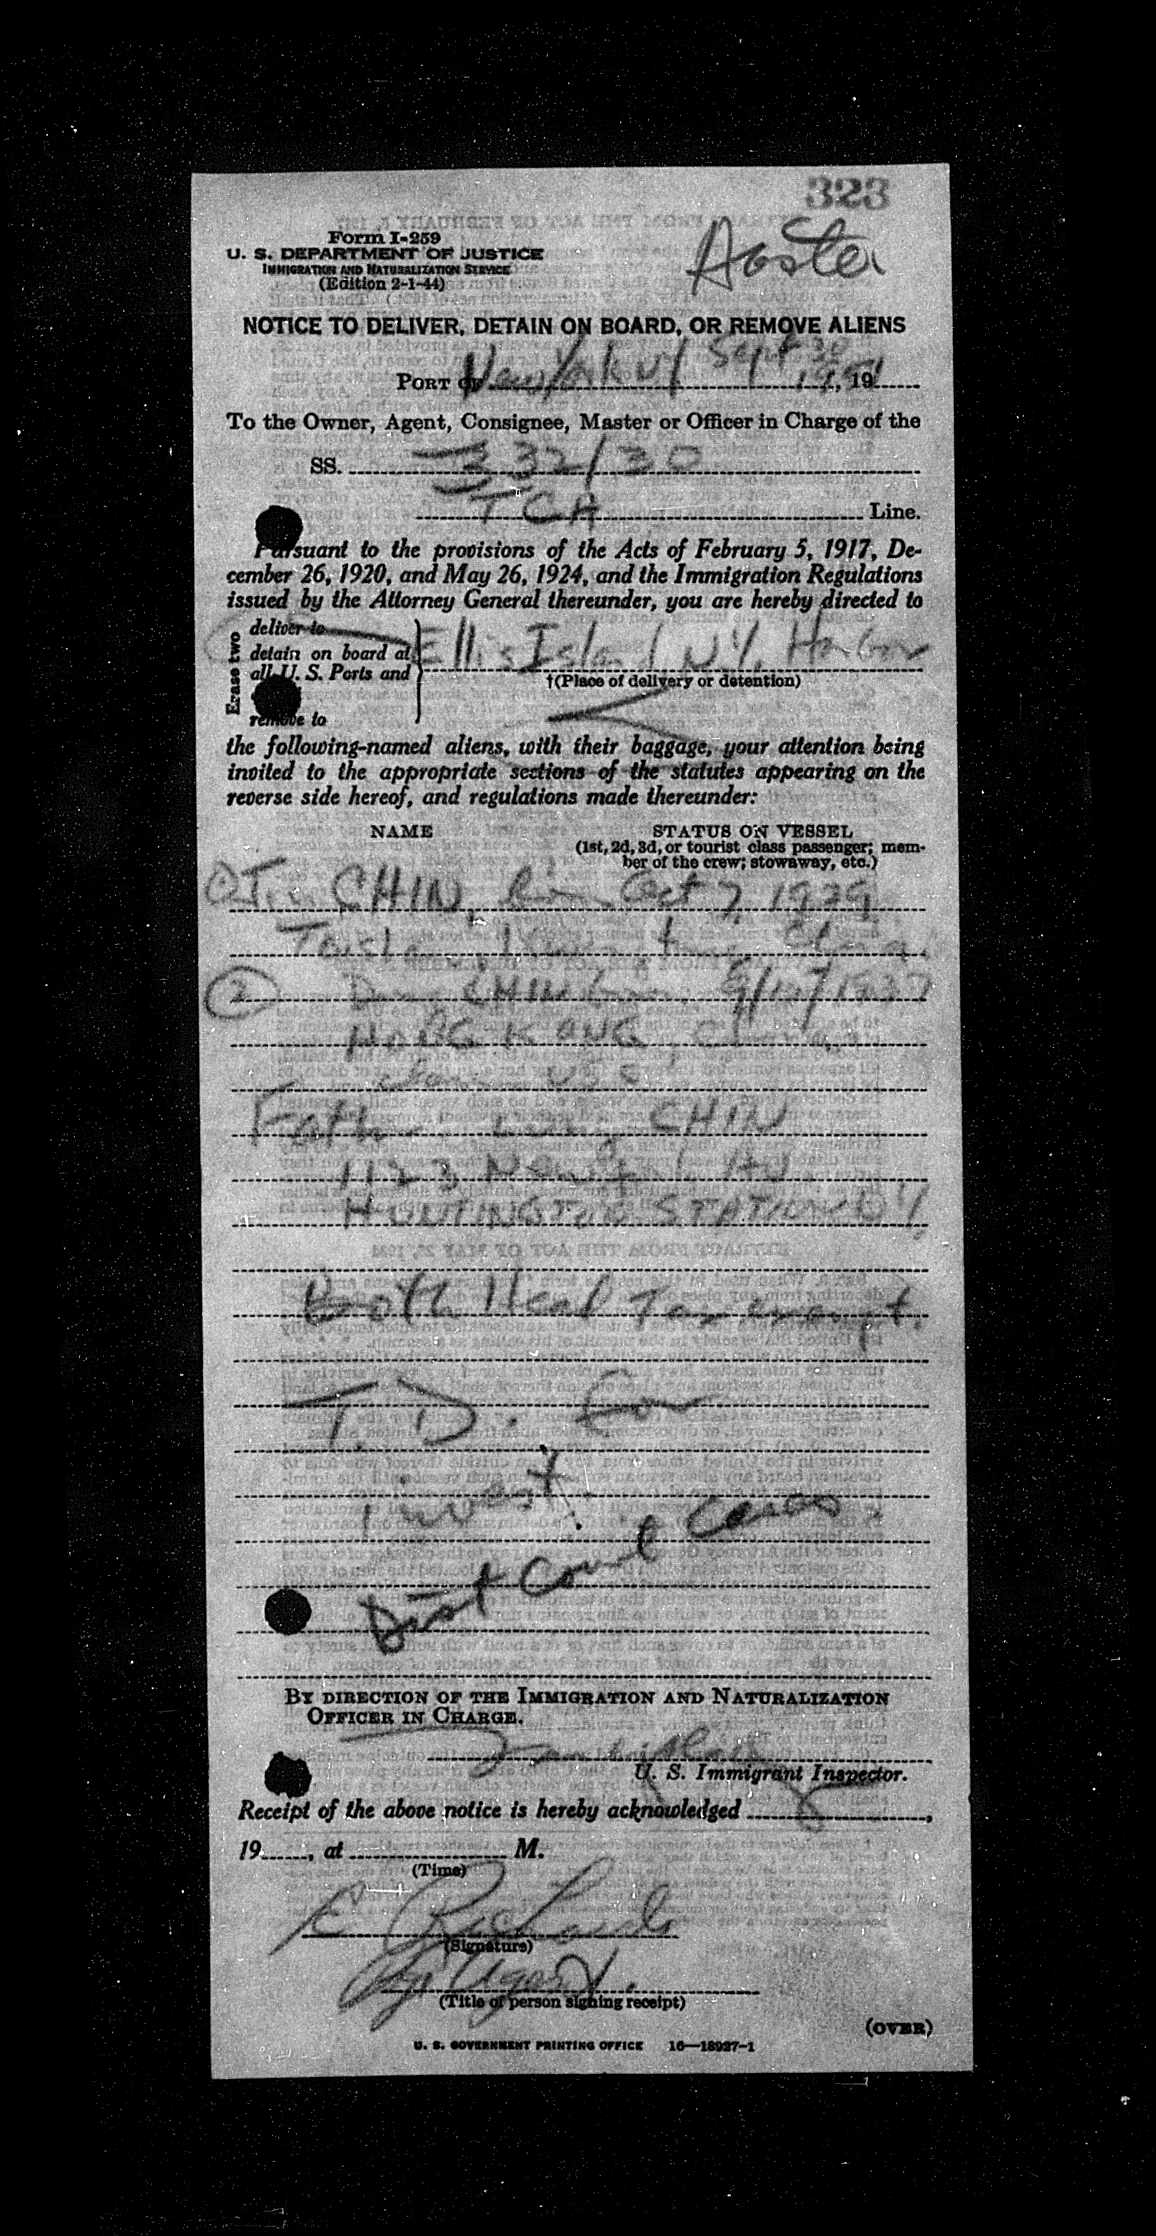 323
Form I-259
U. S. DEPARTMENT OF JUSTICE
IMMIGRATION AND NATURALIZATION SERVICE
(Edition 2-1-44)
NOTICE TO DELIVER, DETAIN ON BOARD, OR REMOVE ALIENS
PORT OF New York NY Sept 30 1951, 19
To the Owner, Agent, Consignee, Master or Officer in Charge of the
SS. 332/30
TCA Line.
Pursuant to the provisions of the Acts of February 5, 1917, De-
cember 26, 1920, and May 26, 1924, and the Immigration Regulations
issued by the Attorney General thereunder, you are hereby directed to
Erase two
deliver to
detain on board at
all U. S. Ports and
remove to
Ellis Island N.Y. Harbor
†(Place of delivery or detention)
the following-named aliens, with their baggage, your attention being
invited to the appropriate sections of the statutes appearing on the
reverse side hereof, and regulations made thereunder:
NAME
STATUS ON VESSEL
(1st, 2d, 3d, or tourist class passenger; mem-
ber of the crew; stowaway, etc.)
CHIN, born Oct 7, 1929
China
2 CHIN born 1937
HONG KONG, China
Claim U S C
Father CHIN
1123 New York Av.
HUNTINGTON STATION NY
Both Head Tax exempt.
T. D. for
invest.
Dist Court Cases
BY DIRECTION OF THE IMMIGRATION AND NATURALIZATION
OFFICER IN CHARGE.
U. S. Immigrant Inspector.
Receipt of the above notice is hereby acknowledged
19, at M.
(Time)
E Richards
(Signature)
Agent.
(Title of person signing receipt)
(OVER)
U. S. GOVERNMENT PRINTING OFFICE 16—18927-1